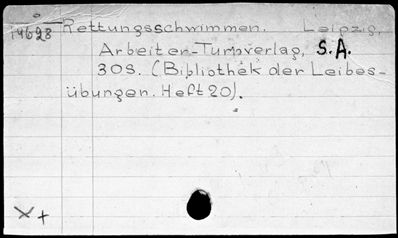 14698 Rettungsschwimmen. Leipzig,
Arbeiter-Turnverlag, S.A.
30S. (Bibliothek der Leibes-
übungen. Heft 20).